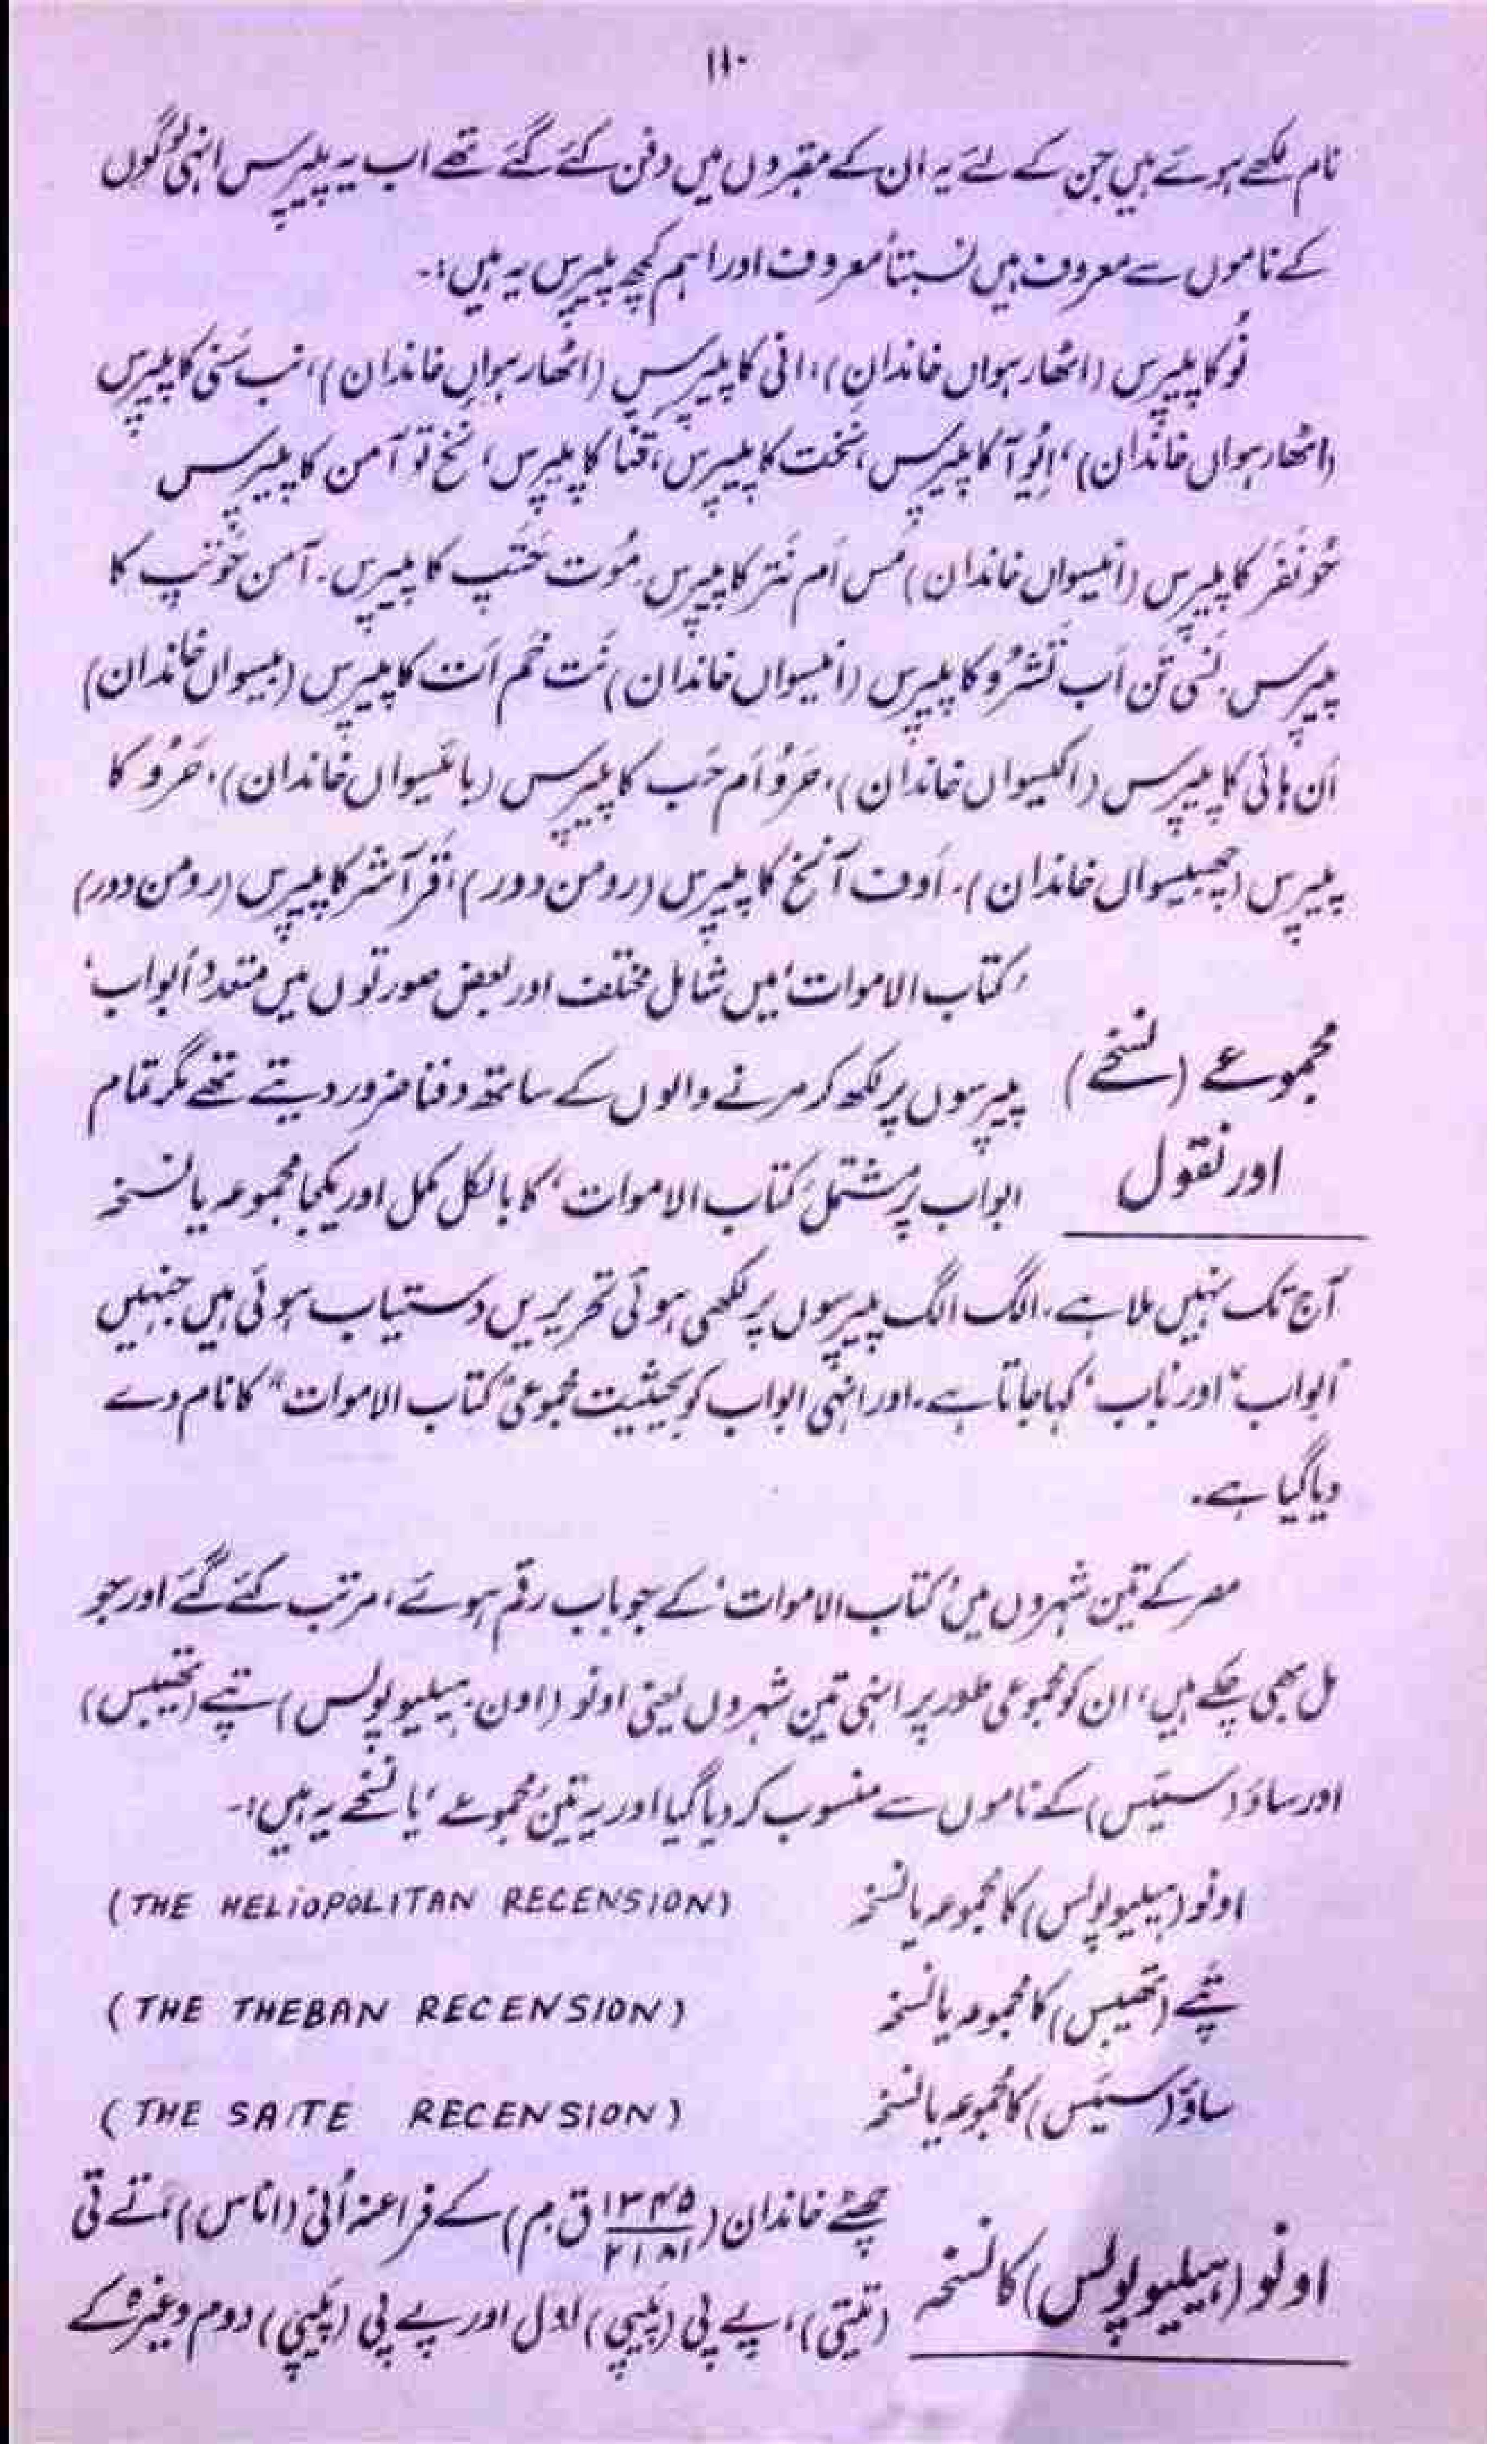 ۱۱۰
نام لکھے ہوئے ہیں جن کے لئے یہ ان کے مقبروں میں دفن کئے گئے تھے اب یہ پیپرس انہی لوگوں
کے ناموں سے معروف ہیں نسبتاً معروف اور اہم کچھ پیپرس یہ ہیں:۔
نُو کا پیپرس (اٹھارہواں خاندان)، انی کا پیپرس (اٹھارہواں خاندان)، نب سَنی کا پیپرس
(اٹھارہواں خاندان)، اِئوآ کا پیپرس، نخت کا پیپرس، قنا کا پیپرس، نخ تو آمن کا پیپرس
حُو نَفَر کا پیپرس (انیسواں خاندان) مَس اَم نَتر کا پیپرس۔ مُوت حَتَپ کا پیپرس۔ آمن حَوتپ کا
پیپرس۔ نَسی تَن اَب تَشرُو کا پیپرس (انیسواں خاندان) نَت خَم اَت کا پیپرس (بیسواں خاندان)
اَن ہائی کا پیپرس (اکیسواں خاندان)، حَرُو اَم حَب کا پیپرس (بائیسواں خاندان)، حَرُو کا
پیپرس (چھبیسواں خاندان)۔ اَوف آنخ کا پیپرس (رومن دور)، قَر آشر کا پیپرس (رومن دور)
'کتاب الاموات' میں شامل مختلف اور بعض صورتوں میں متعدد 'ابواب'
مجموعے (نسخے) پیپرسوں پر لکھ کر مرنے والوں کے ساتھ دفنا ضرور دیتے تھے مگر تمام
اور نقول ابواب پر مشتمل 'کتاب الاموات' کا بالکل مکمل اور یکجا مجموعہ یا نسخہ
آج تک نہیں ملا ہے۔ الگ الگ پیپرسوں پر لکھی ہوئی تحریریں دستیاب ہوئی ہیں جنہیں
'ابواب' اور 'باب' کہا جاتا ہے۔ اور انہی ابواب کو بحیثیت مجموعی "کتاب الاموات" کا نام دے
دیا گیا ہے۔
مصر کے تین شہروں میں 'کتاب الاموات' کے جو باب رقم ہوئے، مرتب کئے گئے اور جو
مل بھی چکے ہیں، ان کو مجموعی طور پر انہی تین شہروں یعنی اونو (اون۔ ہیلیوپولس) تپے (تھیبس)
اور ساؤ (سئیس) کے ناموں سے منسوب کر دیا گیا اور یہ تین 'مجموعے' یا نسخے یہ ہیں:۔
اونو (ہیلیوپولس) کا مجموعہ یا نسخہ (THE HELIOPOLITAN RECENSION)
تپے (تھیبس) کا مجموعہ یا نسخہ (THE THEBAN RECENSION)
ساؤ (سئیس) کا مجموعہ یا نسخہ (THE SAITE RECENSION)
چھٹے خاندان (ق م) کے فراعنہ اُنی (اناس)، تے تی
اونو (ہیلیوپولس) کا نسخہ (تیتی)، پے پی (پیپی) اول اور پے پی (پیپی) دوم وغیرہ کے